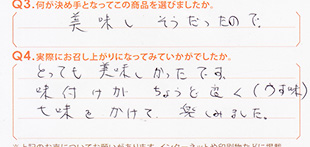 Q3.何が決め手となってこの商品を選びましたか。
美味しそうだったので
Q4.実際にお召し上がりになってみていかがでしたか。
とっても美味しかったです。
味付けがちょうど良く(うす味)
七味をかけて楽しみました。